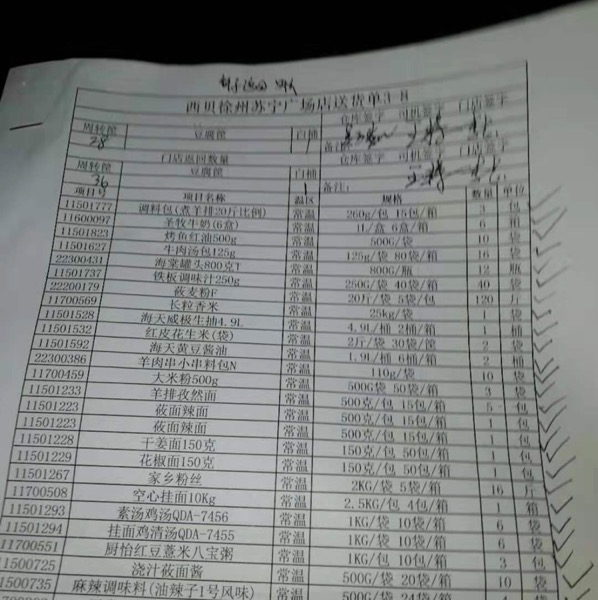 西贝徐州苏宁广场店送货单3-8
仓库签字 司机签字 门店签字
周转筐 豆腐筐 白桶 备注:
28 1
门店返回数量 仓库签字 司机签字 门店签字
周转筐 豆腐筐 白桶 备注:
36 1
项目号 项目名称 温区 规格 数量 单位
11501777 调料包(煮羊排20斤比例) 常温 260g/包 15包/箱 3 包
11600097 圣牧牛奶(6盒) 常温 1L/盒 6盒/箱 6 箱
11501823 烤鱼红油500g 常温 500G/袋 10 袋
11501627 牛肉汤包125g 常温 125g/袋 80袋/箱 16 袋
22300431 海棠罐头800克T 常温 800G/瓶 12 瓶
11501737 铁板调味汁250g 常温 250G/袋 40袋/箱 40 袋
22200179 莜麦粉F 常温 20斤/袋 5袋/包 120 斤
11700569 长粒香米 常温 25kg/袋 1 袋
11501528 海天威极生抽4.9L 常温 4.9L/桶 2桶/箱 1 桶
11501532 红皮花生米(袋) 常温 2斤/袋 30袋/筐 2 袋
11501592 海天黄豆酱油 常温 1.9L/桶 6桶/箱 2 桶
22300386 羊肉串小串料包N 常温 110g/袋 10 袋
11700459 大米粉500g 常温 500G/袋 50袋/箱 3 袋
11501233 羊排孜然面 常温 500克/包 15包/箱 5 包
11501223 莜面辣面 常温 500克/包 15包/箱 1 包
11501223 莜面辣面 常温 500克/包 15包/箱 1 包
11501228 干姜面150克 常温 150克/包 50包/箱 1 包
11501229 花椒面150克 常温 150克/包 50包/箱 1 包
11501267 家乡粉丝 常温 2KG/袋 5袋/箱 16 斤
11700508 空心挂面10Kg 常温 2.5KG/包 4包/箱 1 箱
11501293 素汤鸡汤QDA-7456 常温 1KG/袋 10袋/箱 6 袋
11501294 挂面鸡清汤QDA-7455 常温 1KG/袋 10袋/箱 6 袋
11700551 厨怡红豆薏米八宝粥 常温 1KG/包 10包/箱 3 包
11500725 浇汁莜面酱 常温 500G/袋 20袋/箱 10 袋
1500735 麻辣调味料(油辣子1号风味) 常温 500G/袋 24袋/箱 4 袋